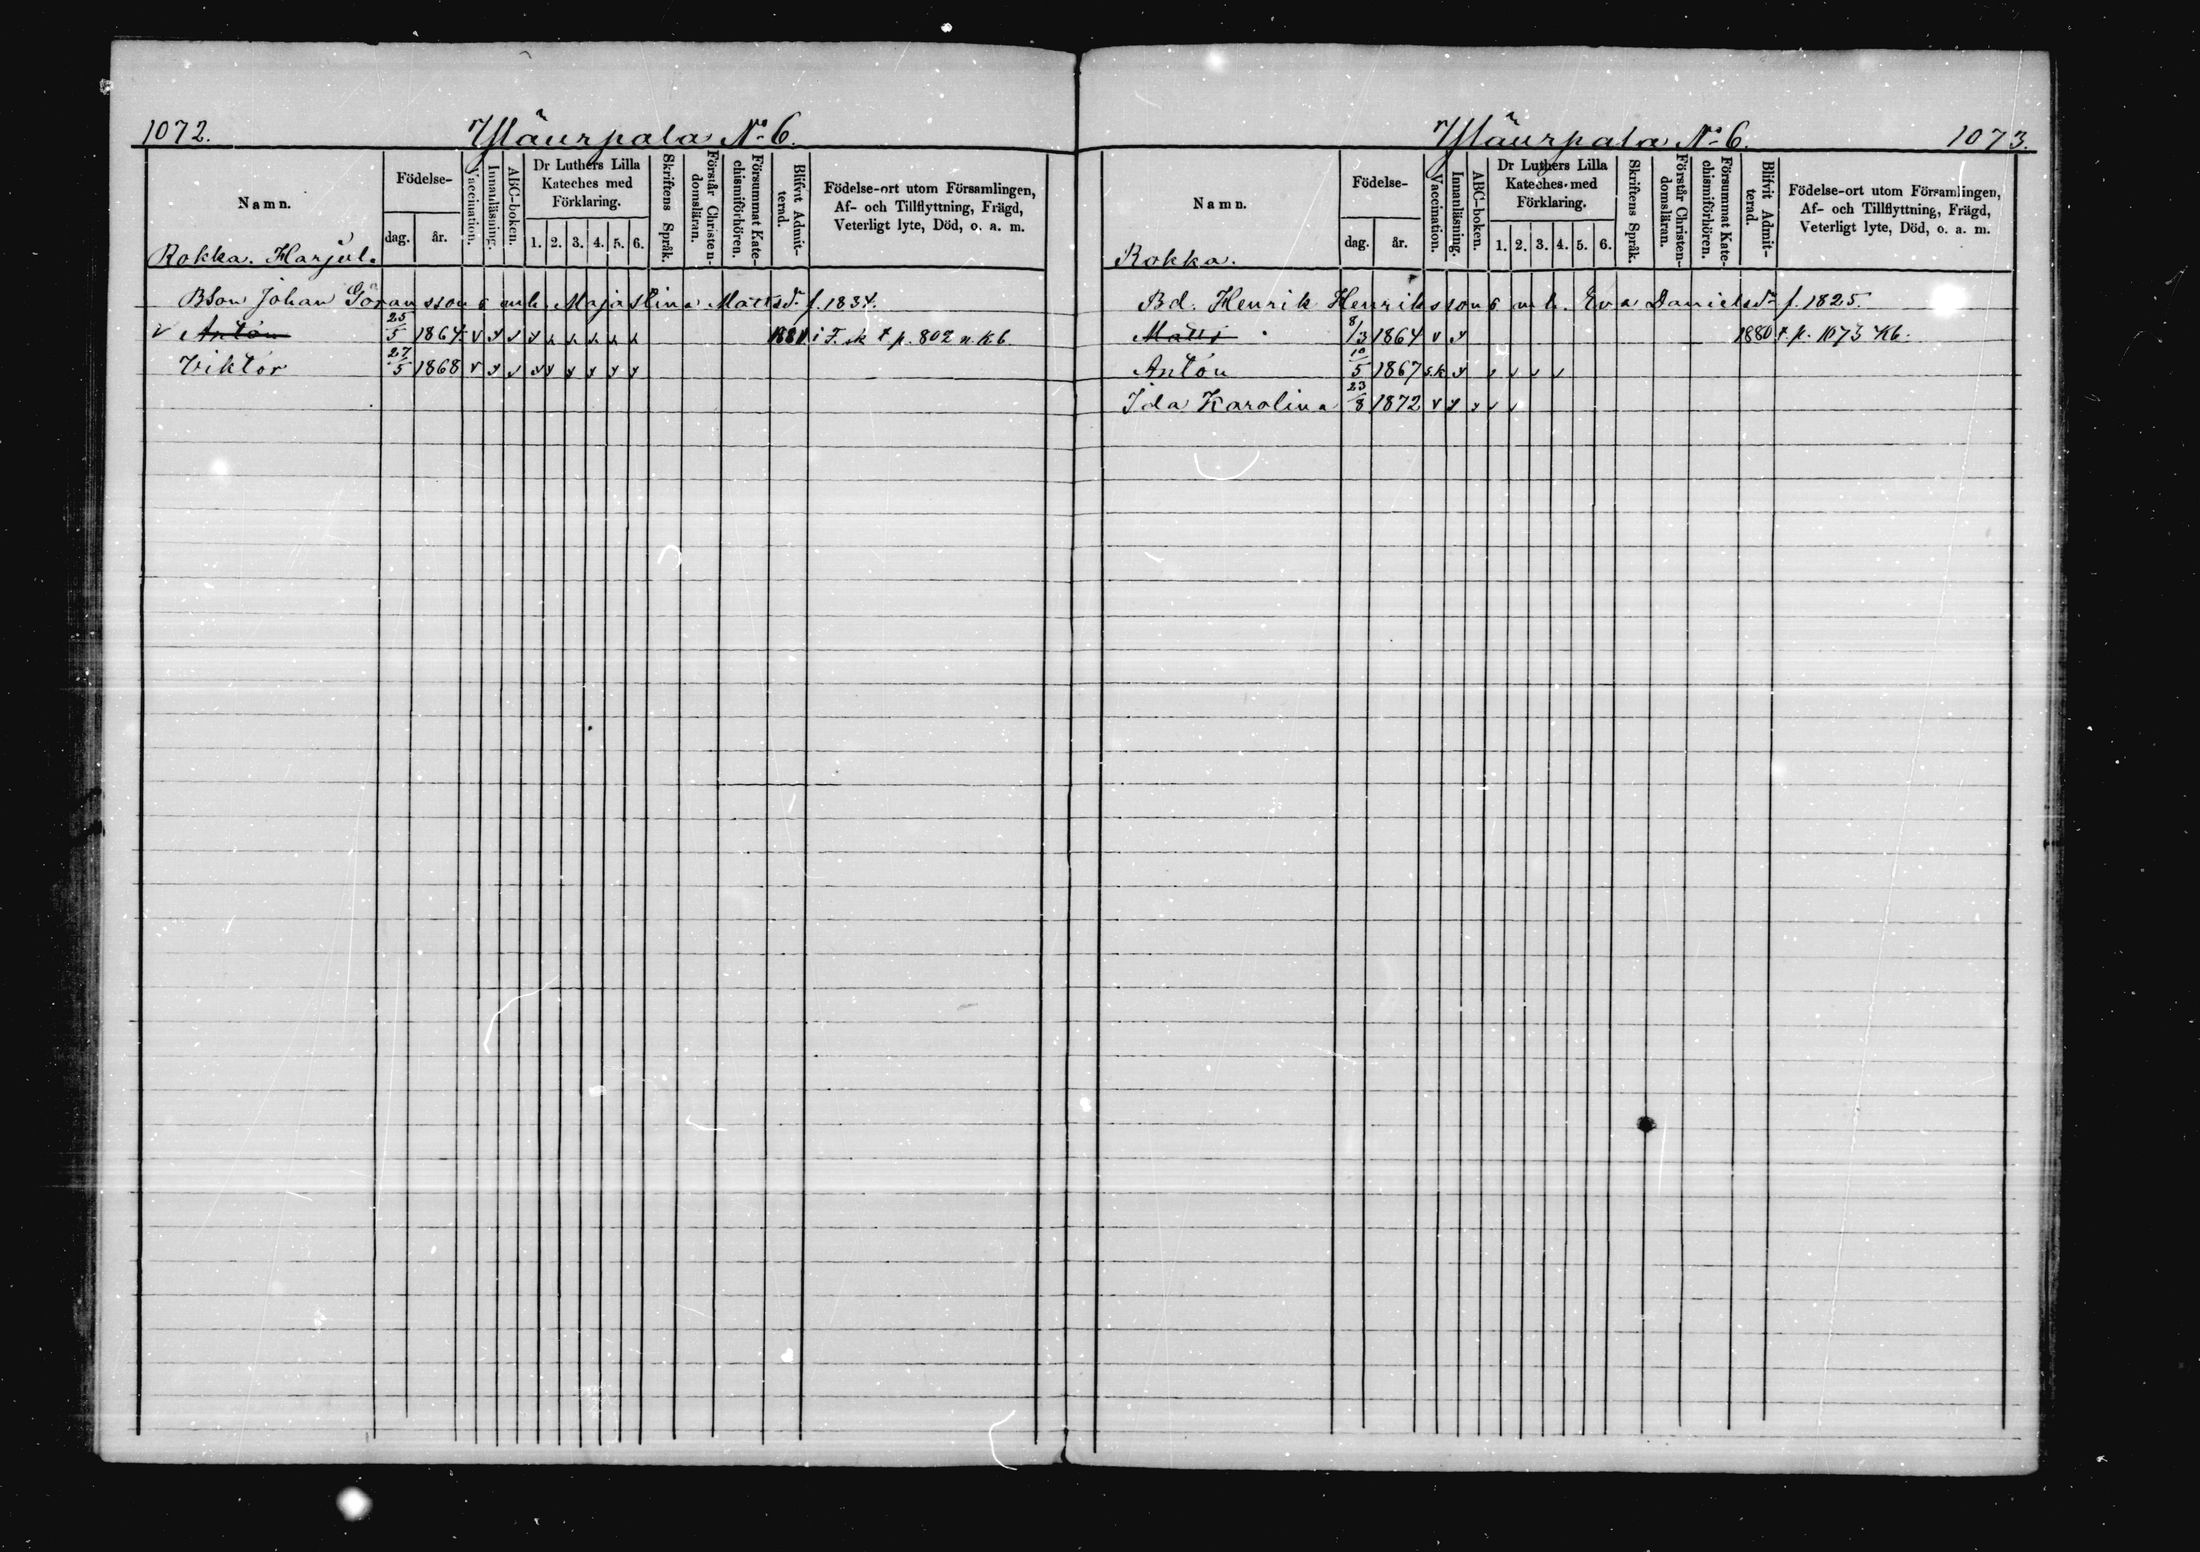 1072. Yläurpala No 6.
Namn. Födelse- dag. år. Vaccination. Innanläsning. ABC-boken. Dr Luthers Lilla Kateches med Förklaring. 1. 2. 3. 4. 5. 6. Skriftens Språk. Förstår Christendomsläran. Försummat Katechismiförhören. Blifvit Admitterad. Födelse-ort utom Församlingen, Af- och Tillflyttning, Frägd, Veterligt lyte, Död, o. a. m.
Rokka. Harjul.
BSon Johan Göransson o m h. Maja Stina Mattsdr f. 1834.
v Anton 25/5 1864 v 1881 i F. sk † p. 802 n. Kb.
Viktor 27/5 1868 v
Yläurpala No 6. 1073.
Namn. Födelse- dag. år. Vaccination. Innanläsning. ABC-boken. Dr Luthers Lilla Kateches med Förklaring. 1. 2. 3. 4. 5. 6. Skriftens Språk. Förstår Christendomsläran. Försummat Katechismiförhören. Blifvit Admitterad. Födelse-ort utom Församlingen, Af- och Tillflyttning, Frägd, Veterligt lyte, Död, o. a. m.
Rokka.
Bd. Henrik Henriksson o m h. Eva Danielsdr f. 1825.
Matti 8/3 1864 v 1880 †. p. 1073 Kb.
Anton 10/5 1867 s.k
Ida Karolina 23/8 1872 v